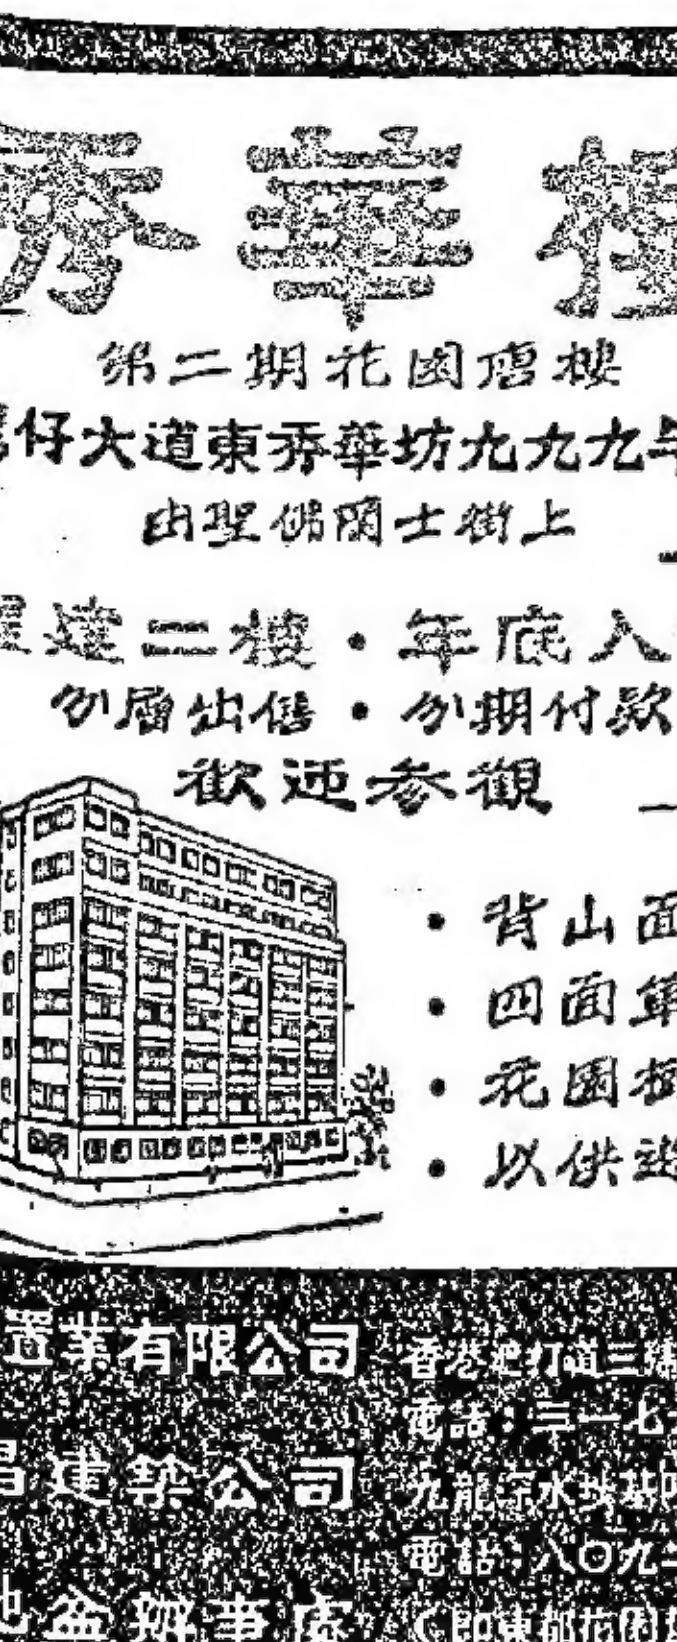 秀華樓
第二期花園唐樓
仔大道東秀華坊九九九年
由聖佛蘭士街上
建二樓・年底入
分層出售・分期付款
歡迎參觀
・背山面
・四面單
・花園
・以供遊
置業有限公司 香港遮打道三
電話：三一七
昌建築公司 九龍深水埗基
電話：八〇九二
地盆辦事處 （即東都花園